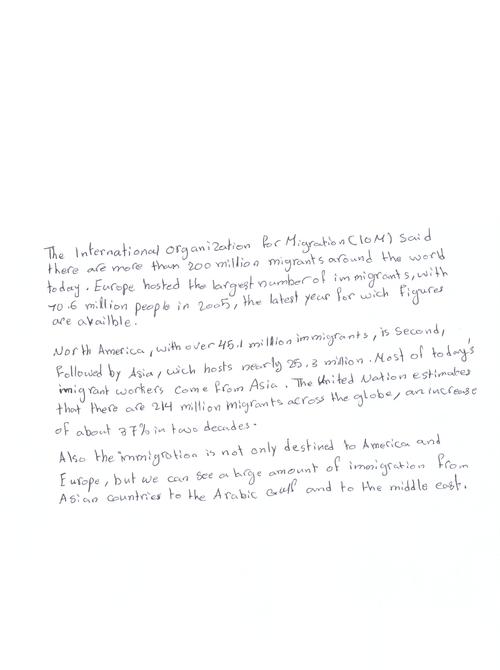 The International organization for Migration (IOM) said
there are more than 200 million migrants around the world
today. Europe hosted the largest number of immigrants, with
70.6 million people in 2005, the latest year for wich figures
are availble.
North America, with over 45.1 million immigrants, is second,
followed by Asia, wich hosts nearly 25.3 million. Most of today's
imigrant workers come from Asia. The United Nation estimates
that there are 214 million migrants across the globe, an increase
of about 37% in two decades.
Also the immigration is not only destined to America and
Europe, but we can see a large amount of immigration from
Asian countries to the Arabic Gulf and to the middle east.